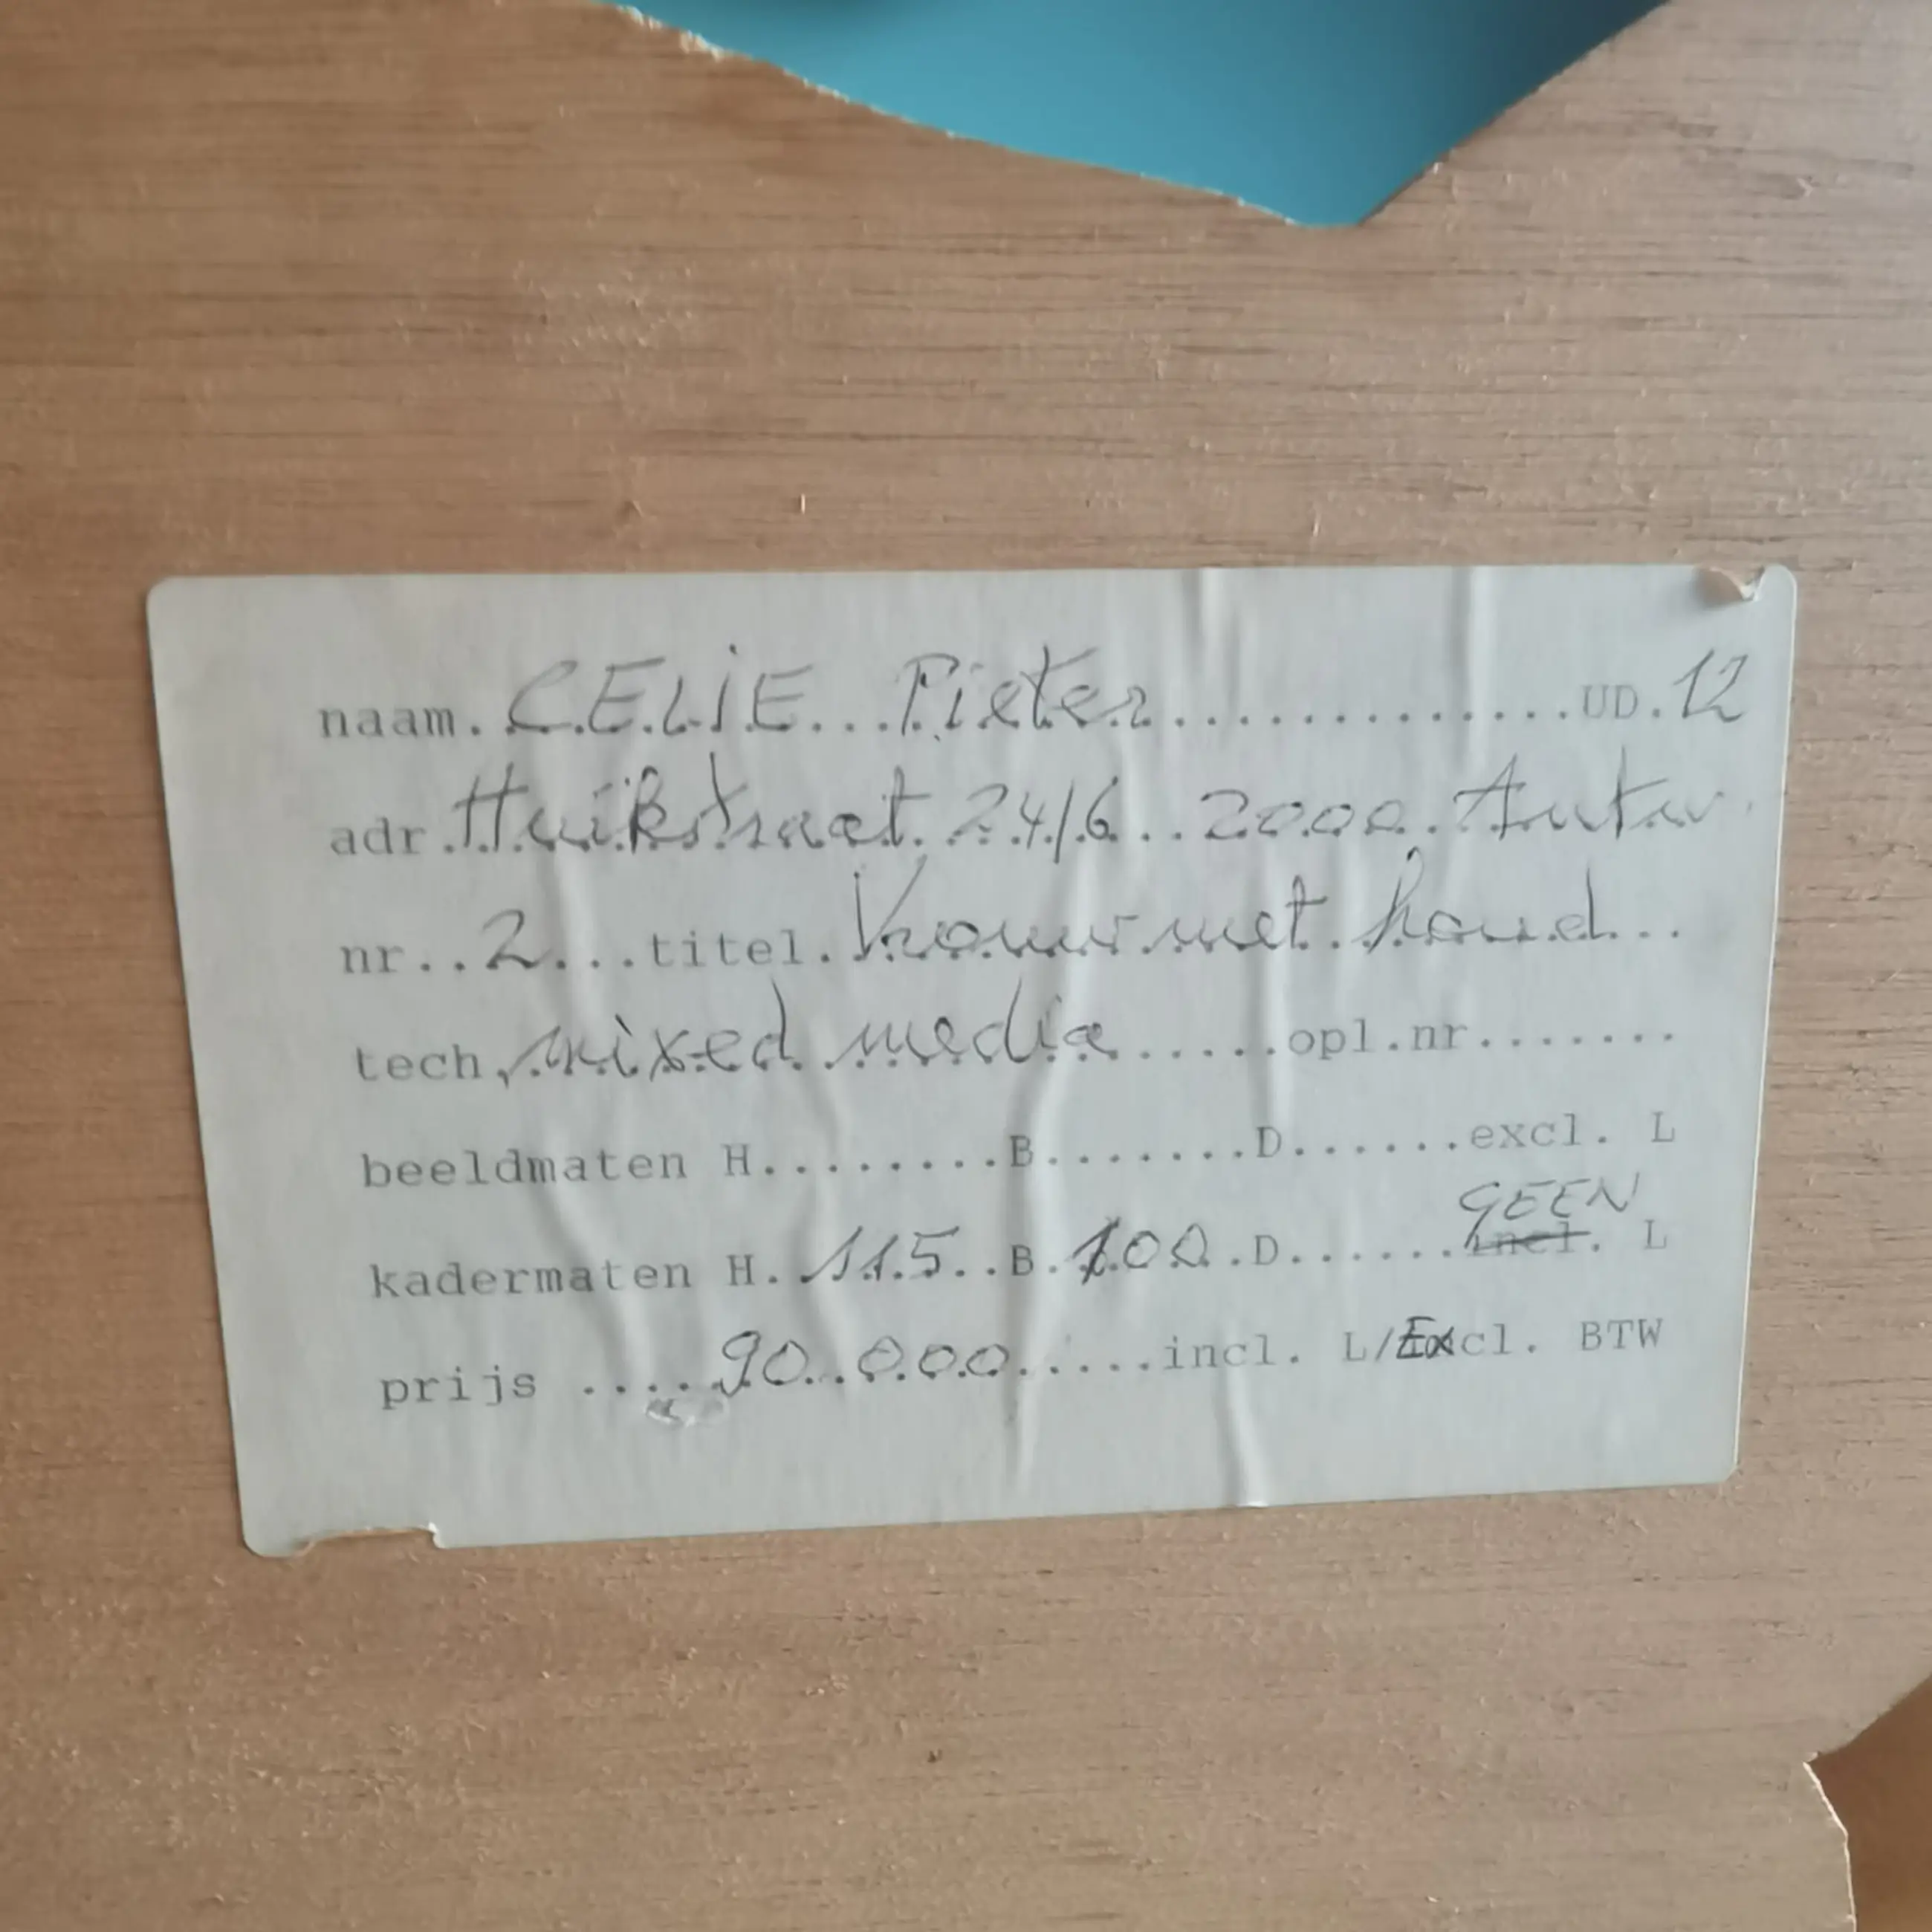 naam. CELIE...Pieter...............UD.12
adr. Huikstraat. 24/6..2000..Antw
nr..2...titel. Vrouw met. hond...
tech. mixed media......opl.nr.......
beeldmaten H........B.......D......excl. L
GEEN
kadermaten H. 115..B.100.D......incl. L
prijs ....90.000.....incl. L/Excl. BTW